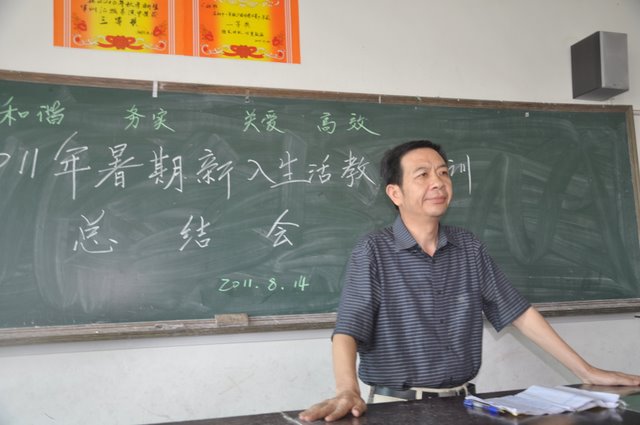 三等奖
二等奖
和谐 务实 关爱 高效
011年暑期新入生活教 训
总结会
2011.8.14